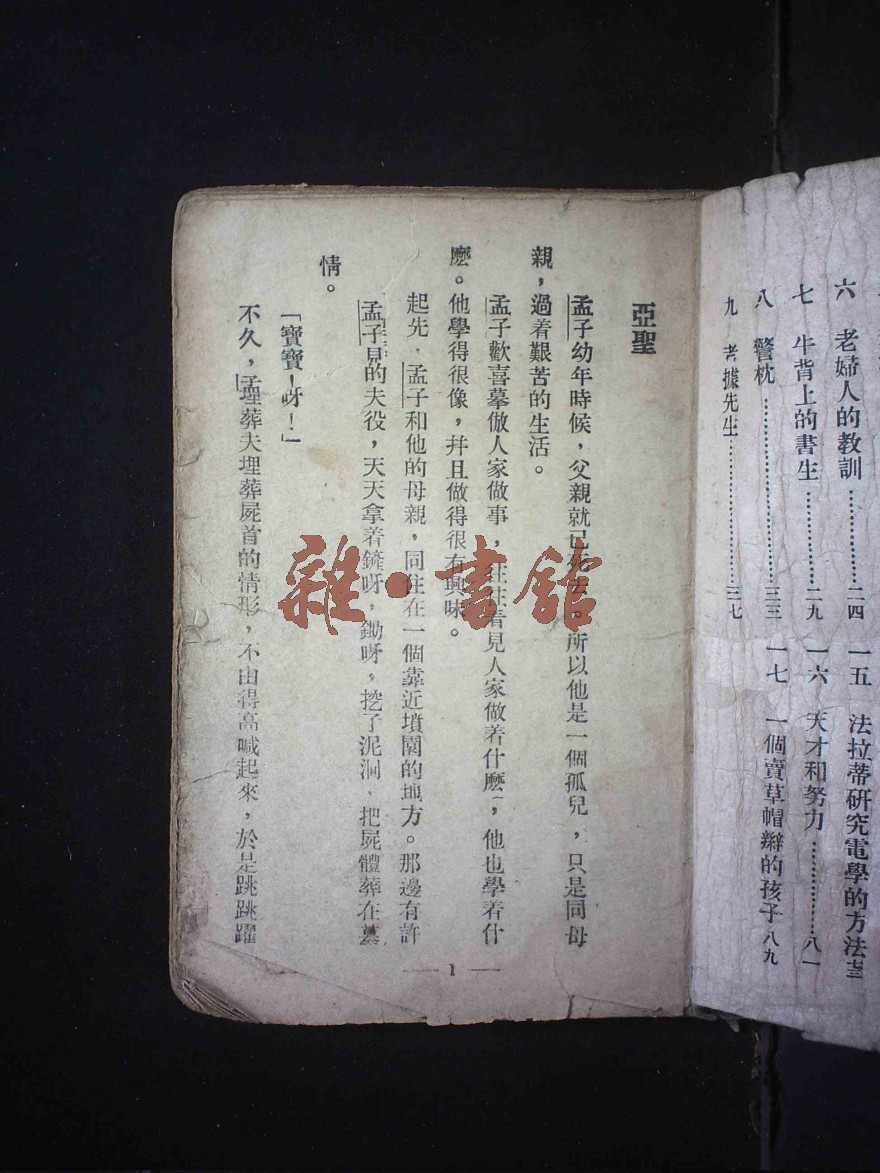 六 老婦人的教訓……………二四
七 牛背上的書生…………二九
八 警枕…………………三三
九 考據先生………………三七
一五 法拉蒂研究電學的方法
一六 天才和努力……………八一
一七 一個賣草帽辮的孩子八九
亞聖
孟子幼年時候，父親就已死去。所以他是一個孤兒，只是同母
親，過着艱苦的生活。
孟子歡喜摹倣人家做事，往往看見人家做着什麼，他也學着什
麼。他學得很像，幷且做得很有興味。
起先，孟子和他的母親，同住在一個靠近墳園的地方。那邊有許
的夫役，天天拿着鏟呀，鋤呀，挖了泥洞，把屍體葬在墓
情。
「寶寶！呀！」
不久，孟埋葬夫埋葬屍首的情形，不由得高喊起來，於是跳跳躍
1
雜·書館